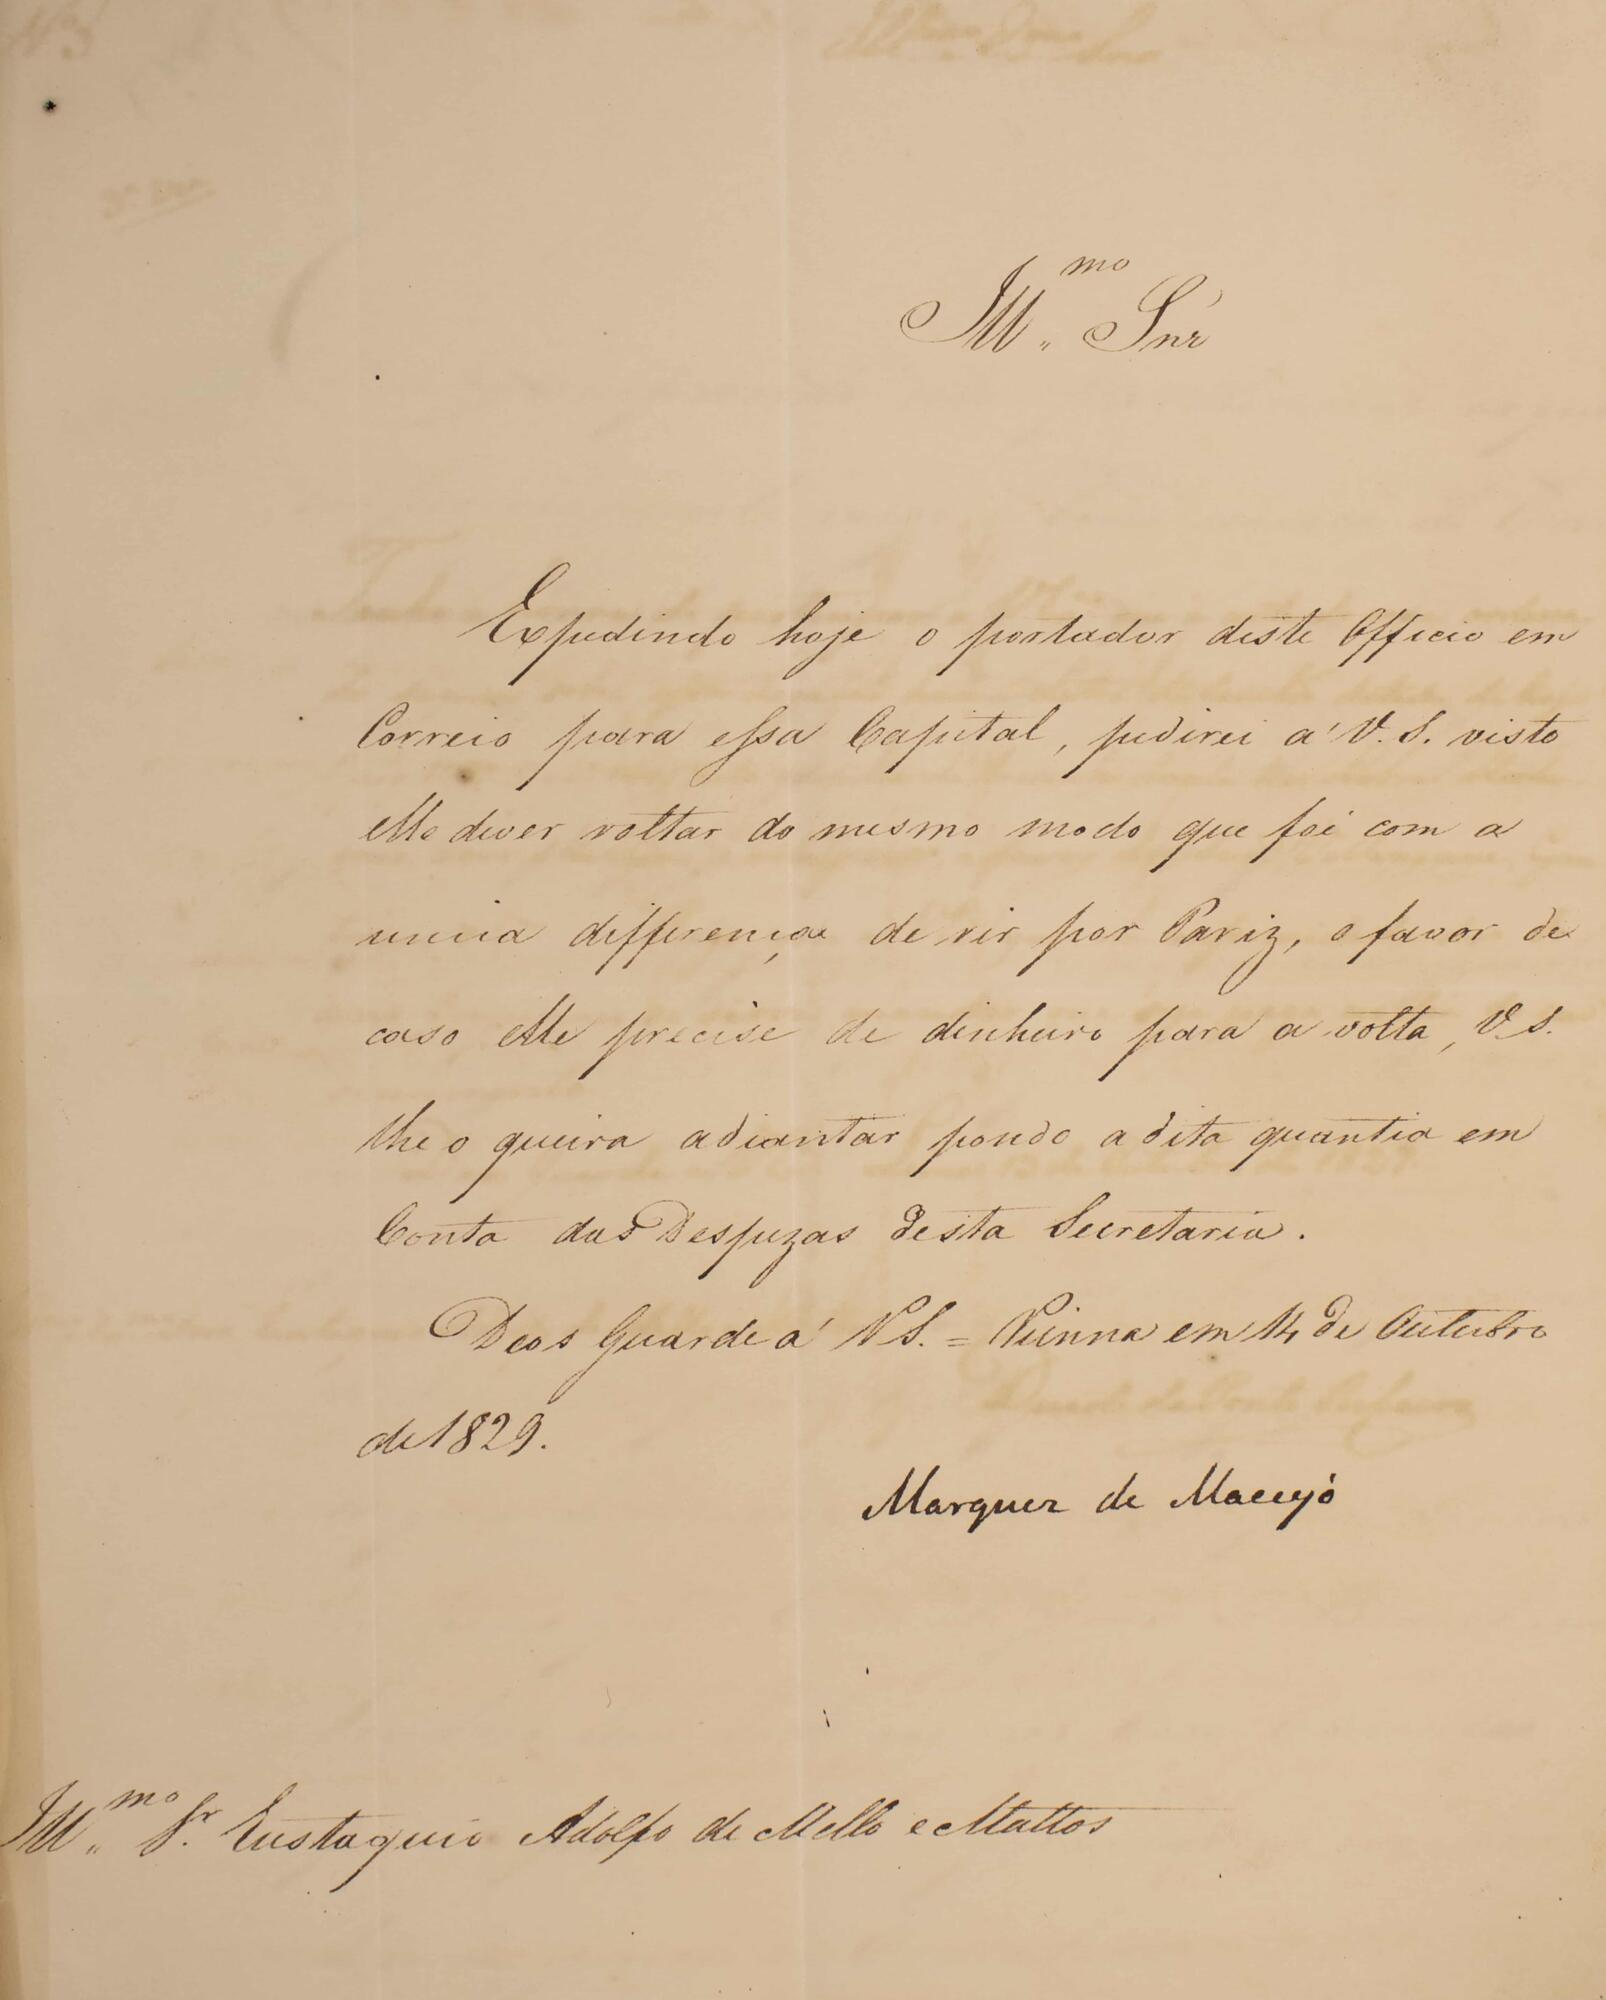 Ill.mo Snr
Expedindo hoje o portador deste Officio em
Correio para essa Capital, pedirei a' V. S. visto
elle dever voltar do mesmo modo que foi com a
unica differença de vir por Pariz, o favor de
caso elle precise de dinheiro para a volta, V. S.
lhe o queira adiantar pondo a dita quantia em
Conta das Despezas desta Secretaria.
Deos Guarde a' V S. = Vienna em 14 de Outubro
de 1829.
Marquez de Maceyó
Ill.mo Sr. Eustaquio Adolfo de Mello e Mattos